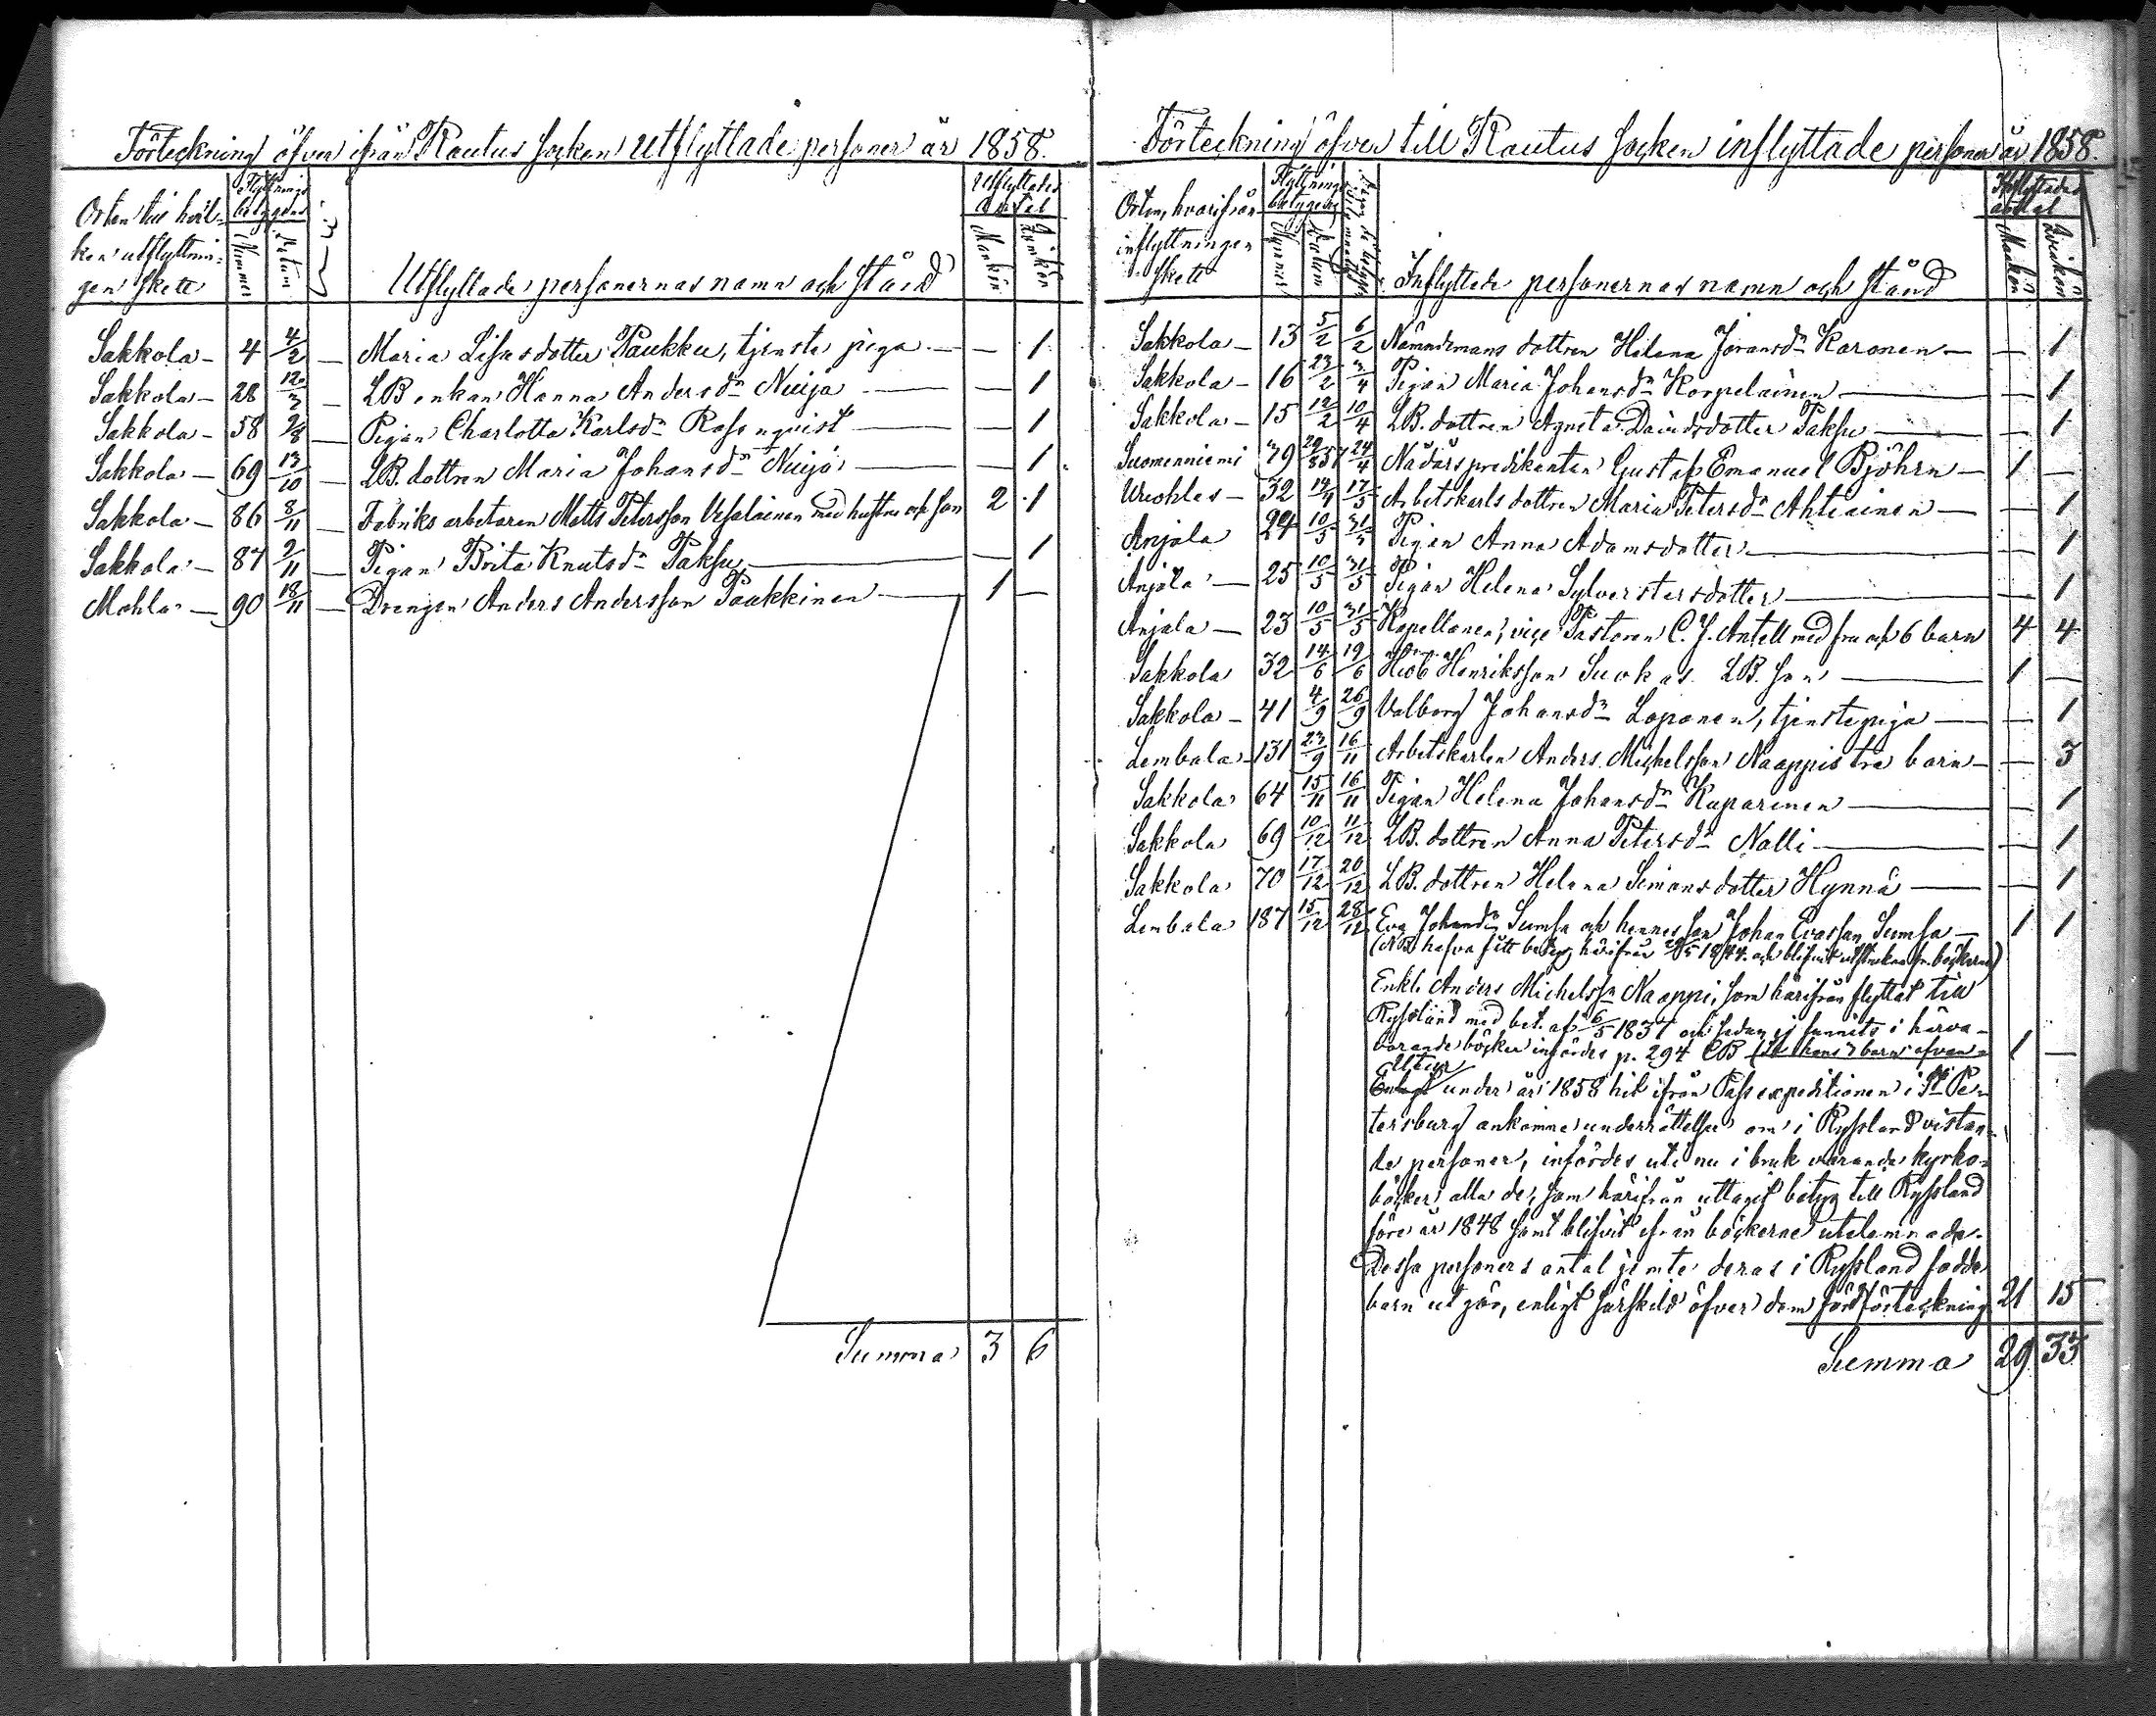 Förteckning öfver ifrån Rautus socken utflyttade personer år 1858.
Orten till hvil-
ken utflyttnin-
gen skett
Flyttnings
betygens
Nummer
Datum
Utflyttade personernas namn och stånd
Utflyttades
Antal
Mankön
Qvinkön
Sakkola - 4 4/2 - Maria Lisasdotter Paukku, tjenste piga - - 1
Sakkola - 28 12/3 - LB enkan Hanna Andersdr Nuija - - 1
Sakkola - 58 /8 - Pigan Charlotta Karlsdr Rosenqvist - - 1
Sakkola - 69 13/10 - LB. dottren Maria Johansdr Nuija - - 1
Sakkola - 86 8/11 - Fabriks arbetaren Matts Petersson Vesalainen med hustru och son 2 1
Sakkola - 87 9/11 - Pigan Brita Knutsdr Paksu - - 1
Mohla - 90 18/11 - Drengen Anders Andersson Paukkinen - 1 -
Summa 3 6
Förteckning öfver till Rautus socken inflyttade personer år 1858.
Orten, hvarifrån
inflyttningen
skett
Flyttnings
betygens
Nummer
Datum
Inflyttade personernas namn och stånd
Inflyttades
antal
Mankön
Qvinkön
Sakkola - 13 5/2 6/2 Nämndemans dottren Helena Göransdr Karonen - - 1
Sakkola - 16 23/2 /4 Pigan Maria Johansdr Korpelainen - - 1
Sakkola - 15 12/2 10/4 LB. dottren Agneta Davidsdotter Paksu - - 1
Suomenniemi 79 857 24/4 Nådårspredikanten Gustaf Emanuel Björhn - 1 -
- 32 14/4 17/5 Arbetskarls dottren Maria Petersdr Ahtiainen - - 1
Anjala 24 10/5 31/5 Pigan Anna Adamsdotter - - 1
Anjala - 25 10/5 31/5 Pigan Helena Sylvestersdotter - - 1
Anjala - 23 10/5 31/5 Kapellanen, vice Pastoren C. J. Antell med fru och 6 barn 4 4
Sakkola 32 14/6 19/6 Hiob Henriksson Suokas LB. son - 1 -
Sakkola - 41 4/9 26/9 Valborg Johansdr Loponen, tjenstepiga - - 1
Lembala - 131 23/9 16/11 Arbetskarlen Anders Michelsson Naappis tre barn - - 3
Sakkola 64 15/11 16/11 Pigan Helena Johansdr Kuparinen - - 1
Sakkola 69 10/12 11/12 LB. dottren Anna Petersdr Nalli - - 1
Sakkola 70 17/12 20/12 LB. dottren Helena Simonsdotter Hynnä - - 1
Lembala 187 15/12 28/12 Eva Johansdr Sumsa och hennes son Johan Evasson Sumsa - 1 1
(NB hafva fått betyg härifrån /5 1844 och blifvit utstrukna fr. böckerne)
Enkl. Anders Michelssn Naappi, som härifrån flyttat till
Ryssland med bet. af 6/5 1837 och sedan ej funnits i härva-
varande böcker infördes p. 294 CB hans 3 barn ofvan 1 -
under år 1858 hit ifrån Pass expeditionen i St Pe-
tersburg ankomna underrättelser om i Ryssland vistan-
de personer, infördes uti nu i bruk varande kyrko-
böcker alla de, som härifrån uttagit betyg till Ryssland
före år 1848 samt blifvit ifrån böckerne utelemnade.
Dessa personers antal jemte deras i Ryssland födda
barn utgör, enligt särskild öfver dem förd förteckning 21 15
Summa 29 33